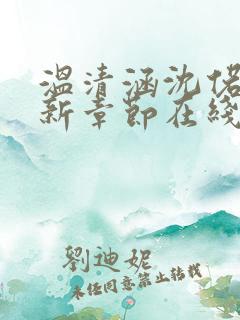 溫清涵沈偌
新章節在綫
劉迪妮
未經同意禁止轉載